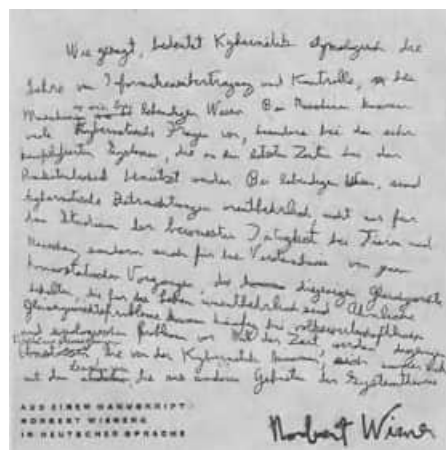 Wie gesagt, bedeutet Kybernetik etymologisch die
Lehre von Informationsübertragung und Kontrolle, bei
Maschinen wie bei lebendigen Wesen. Bei Maschinen kommen
viele kybernetische Fragen vor, besonders bei den sehr
komplizierten Systemen, die in der letzten Zeit bei der
benützt worden. Bei lebendigen Wesen, sind
kybernetische Betrachtungen unentbehrlich, nicht nur für
das Studium der bewussten Tätigkeit bei Tieren und
Menschen, sondern auch für das Verständniss von
homeostatischen Vorgängen, die diejenigen Gleichgewichte
erhalten, die für das Leben unentbehrlich sind. Ähnliche
Gleichgewichtsprobleme kommen häufig bei volkswirtschaftlichen
und Problemen vor. Mit der Zeit, werden diejenigen
die von der Kybernetik kommen, sich
mit den die aus anderen Gebieten der Systemtheorie
AUS EINEM MANUSKRIPT
NORBERT WIENERS
IN DEUTSCHER SPRACHE
Norbert Wiener